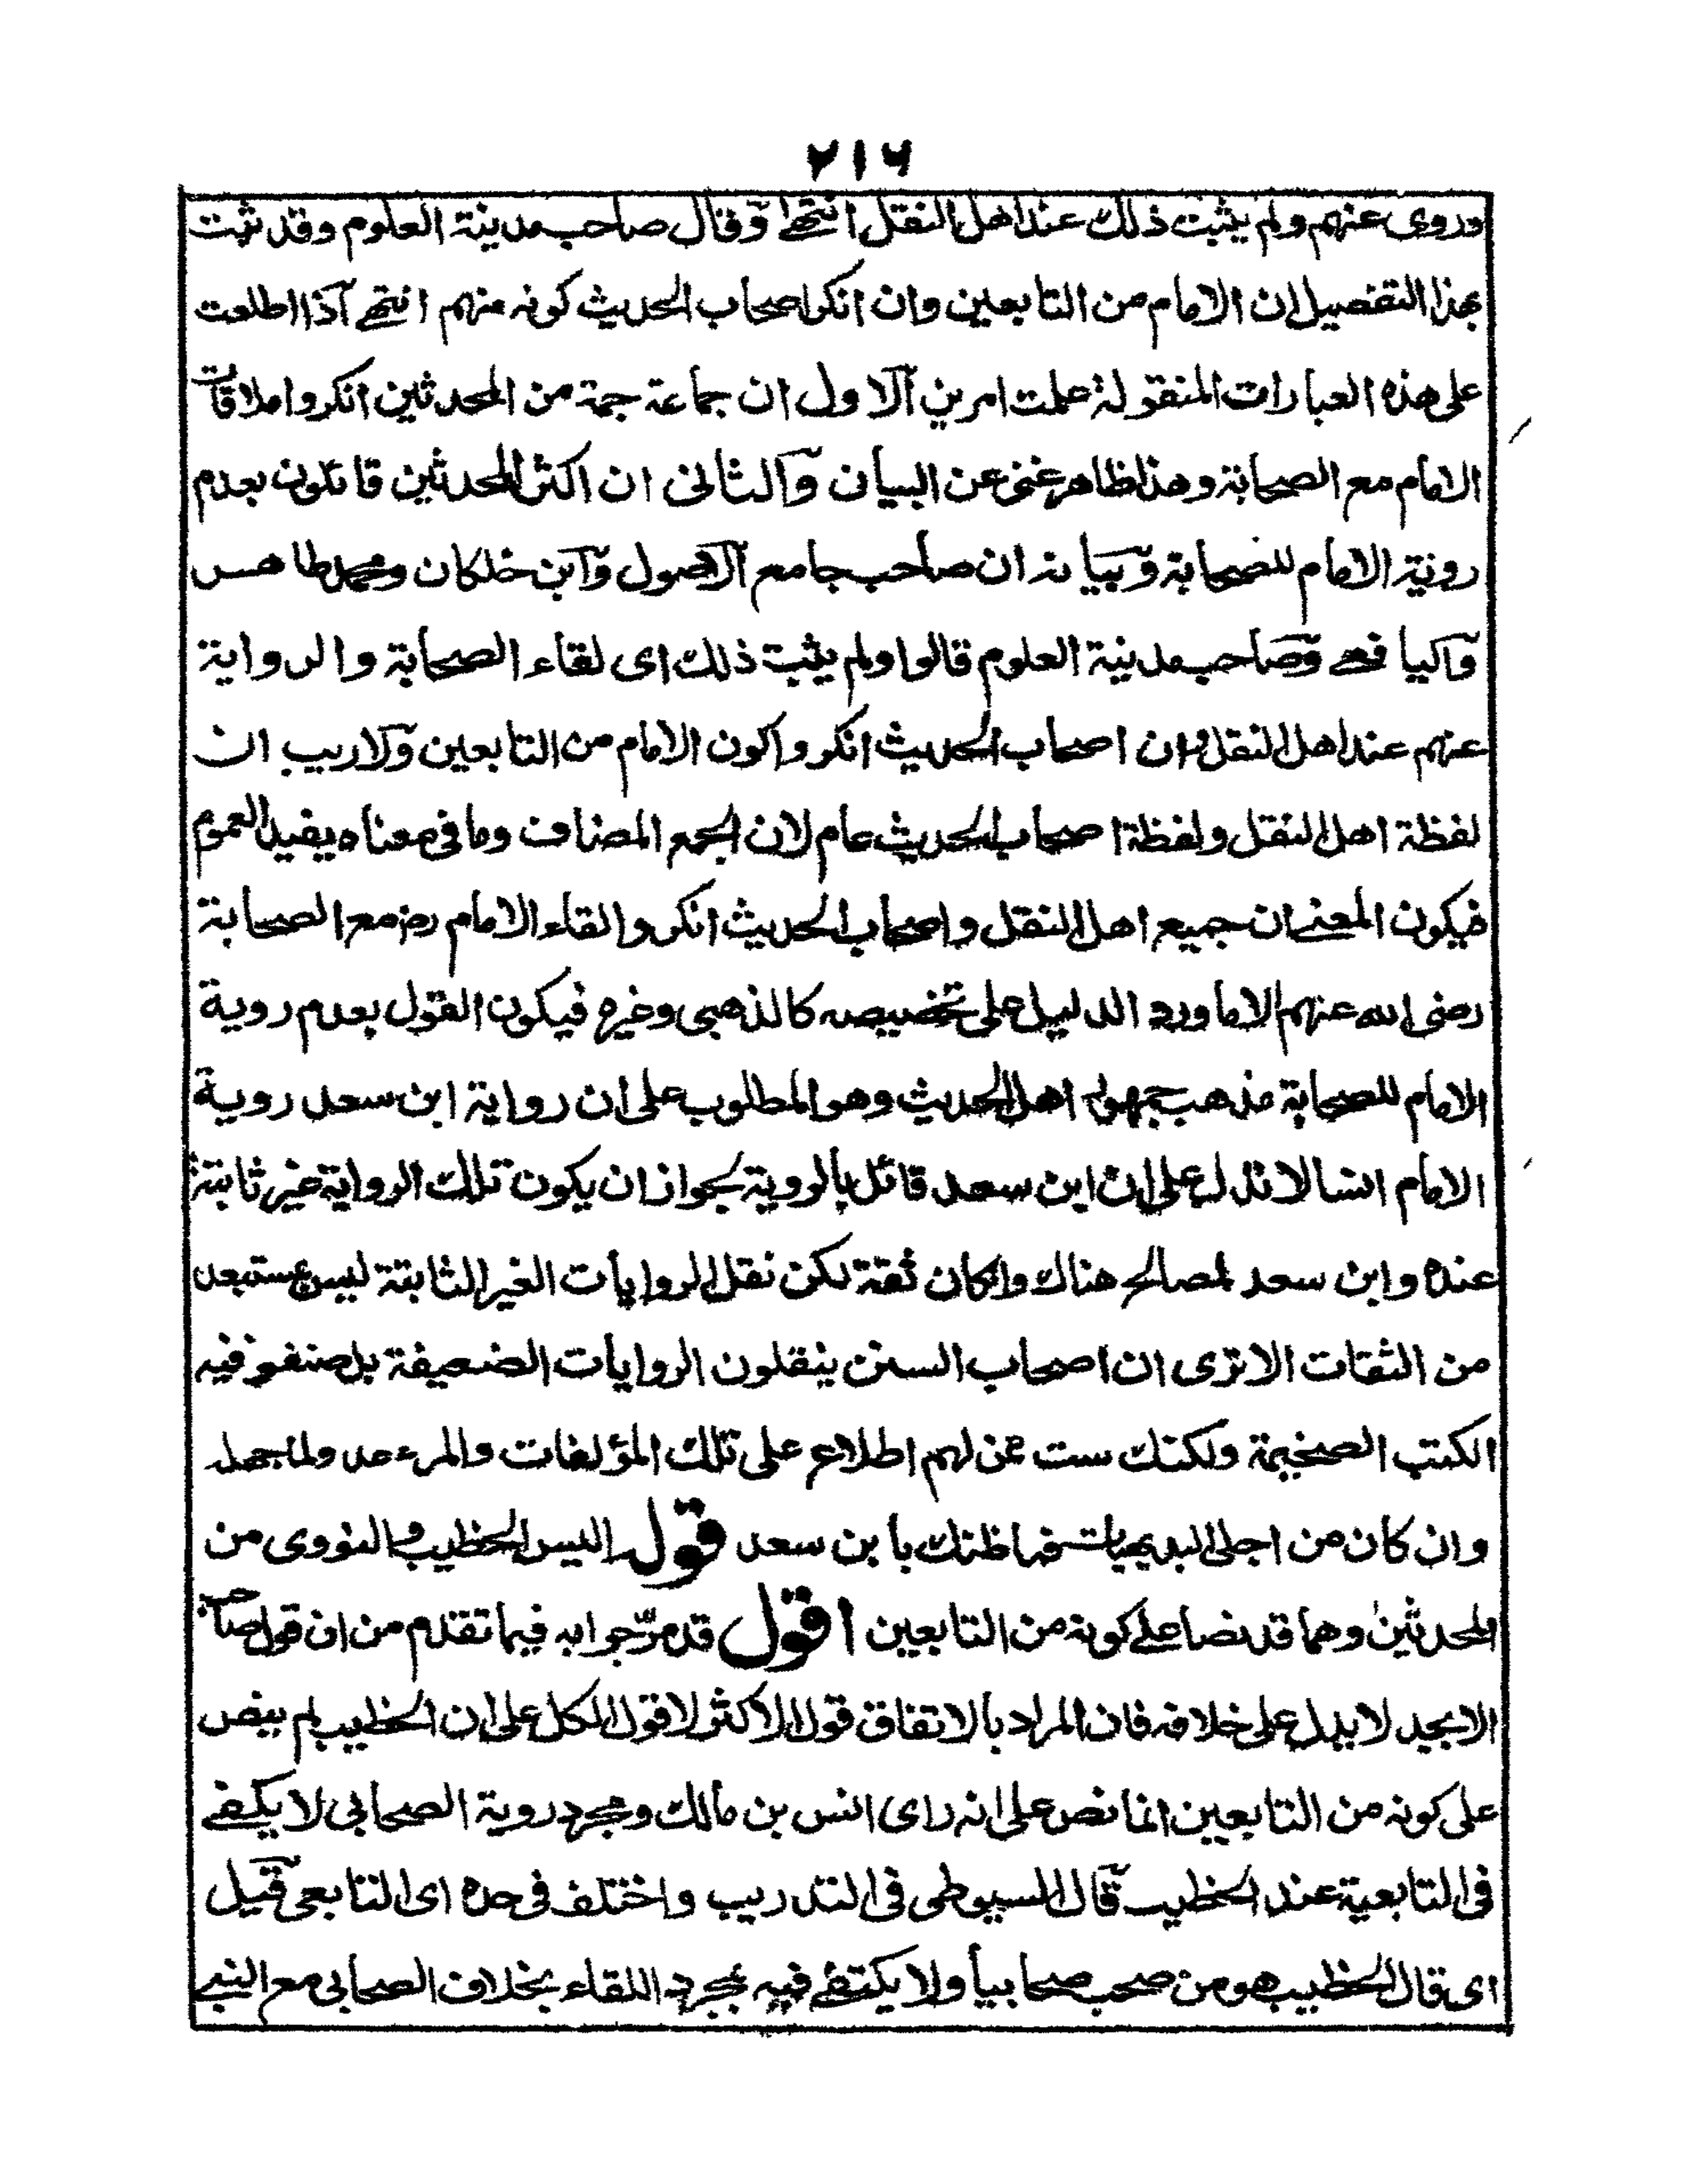 ۲۱۶
وروى عنهم ولم يثبت ذلك عند اهل النقل انتهى وقال صاحب مدينة العلوم وقد ثبت
بهذا التفصيل ان الامام من التابعين وان انكر اصحاب الحديث كونه منهم انتهى اذا اطلعت
على هذه العبارات المنقولة علمت امرين الاول ان جماعة جمة من المحدثين انكروا ملاقات
الامام مع الصحابة وهذا ظاهر غنى عن البيان والثانى ان اكثر المحدثين قائلون بعدم
روية الامام للصحابة وبيانه ان صاحب جامع الاصول وابن خلكان ومحمد طاهر
واليافعى وصاحب مدينة العلوم قالوا ولم يثبت ذلك اى لقاء الصحابة والرواية
عنهم عند اهل النقل وان اصحاب الحديث انكروا كون الامام من التابعين ولا ريب ان
لفظة اهل النقل ولفظة اصحاب الحديث عام لان الجمع المضاف وما فى معناه يفيد العموم
فيكون المعنى ان جميع اهل النقل واصحاب الحديث انكروا لقاء الامام رض مع الصحابة
رضى الله عنهم الا ما ورد الدليل على تخصيصه كالذهبى وغيره فيكون القول بعدم روية
الامام للصحابة مذهب جمهور اهل الحديث وهو المطلوب على ان رواية ابن سعد روية
الامام انسا لا تدل على ان ابن سعد قائل بالروية لجواز ان يكون تلك الرواية غير ثابتة
عنده وابن سعد لمصالح هناك وان كان ثقة لكن نقل الروايات الغير الثابتة ليس بمستبعد
من الثقات الا ترى ان اصحاب السنن ينقلون الروايات الضعيفة بل صنفوا فيه
الكتب الضخيمة ولكنك لست ممن لهم اطلاع على تلك المؤلفات والمرء عدو لما جهله
وان كان من اجلى البديهيات فما ظنك بابن سعد قوله اليس الخطيب والنووى من
المحدثين وهما قد نصا على كونه من التابعين اقول قد مر جوابه فيما تقدم من ان قول صاحب
الابجد لا يدل على خلافه فان المراد بالاتفاق قول الاكثر لا قول الكل على ان الخطيب لم ينص
على كونه من التابعين انما نص على انه راى انس بن مالك ومجرد روية الصحابى لا يكفى
فى التابعية عند الخطيب قال السيوطى فى التدريب واختلف فى حده اى التابعى قيل
اى قال الخطيب هو من صحب صحابياً ولا يكتفى فيه بمجرد اللقاء بخلاف الصحابى مع النبى